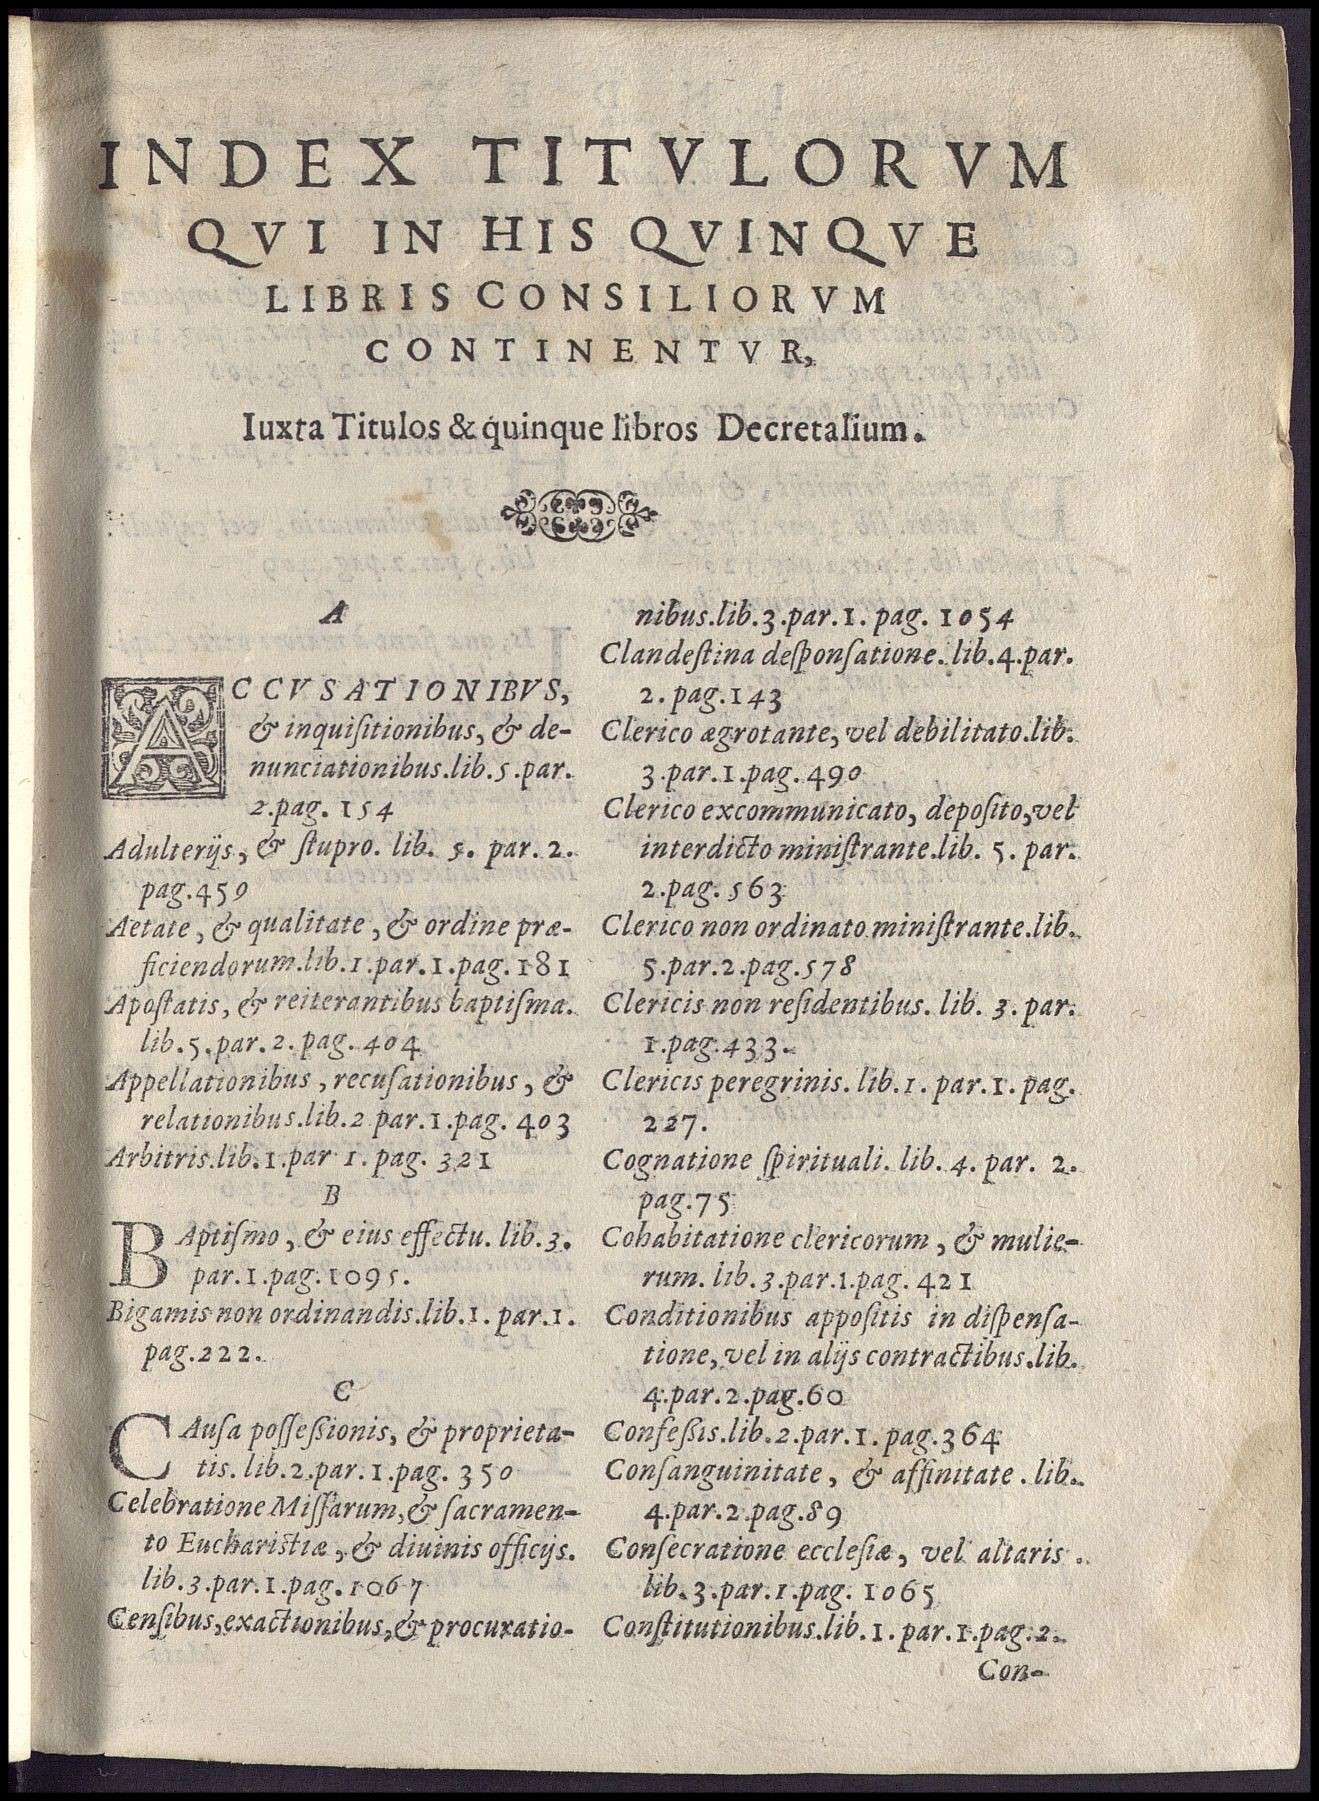 INDEX TITVLORVM
QVI IN HIS QVINQVE
LIBRIS CONSILIORVM
CONTINENTVR,
Iuxta Titulos & quinque libros Decretalium.
A
ACCVSATIONIBVS,
& inquiſitionibus, & de-
nunciationibus.lib.5.par.
2.pag. 154
Adulterijs, & ſtupro. lib. 5. par. 2.
pag.459
Aetate, & qualitate, & ordine præ-
ficiendorum.lib.1.par.1.pag.181
Apoſtatis, & reiterantibus baptiſma.
lib.5.par.2.pag.404
Appellationibus, recuſationibus, &
relationibus.lib.2 par.1.pag. 403
Arbitris.lib.1.par 1. pag. 321
B
BAptiſmo, & eius effectu. lib.3.
par.1.pag.1095.
Bigamis non ordinandis.lib.1. par.1.
pag.222.
C
CAuſa poſſeſsionis, & proprieta-
tis. lib.2.par.1.pag. 350
Celebratione Miſſarum, & ſacramen-
to Euchariſtiæ, & diuinis officijs.
lib.3.par.1.pag.1067
Cenſibus, exactionibus, & procuratio-
nibus.lib.3.par.1. pag. 1054
Clandeſtina deſponſatione. lib.4.par.
2.pag.143
Clerico ægrotante, vel debilitato.lib.
3.par.1.pag.490
Clerico excommunicato, depoſito, vel
interdicto miniſtrante.lib. 5. par.
2.pag. 563
Clerico non ordinato miniſtrante.lib.
5.par.2.pag.578
Clericis non reſidentibus. lib. 3. par.
1.pag.433.
Clericis peregrinis. lib.1. par.1. pag.
227.
Cognatione ſpirituali. lib. 4. par. 2.
pag.75
Cohabitatione clericorum, & mulie-
rum. lib.3.par.1.pag. 421
Conditionibus appoſitis in diſpenſa-
tione, vel in alijs contractibus.lib.
4.par.2.pag.60
Confeſsis.lib.2.par.1. pag.364
Conſanguinitate, & affinitate. lib.
4.par.2.pag.89
Conſecratione eccleſiæ, vel altaris.
lib.3.par.1.pag. 1065
Conſtitutionibus.lib.1.par.1.pag.2.
Con-